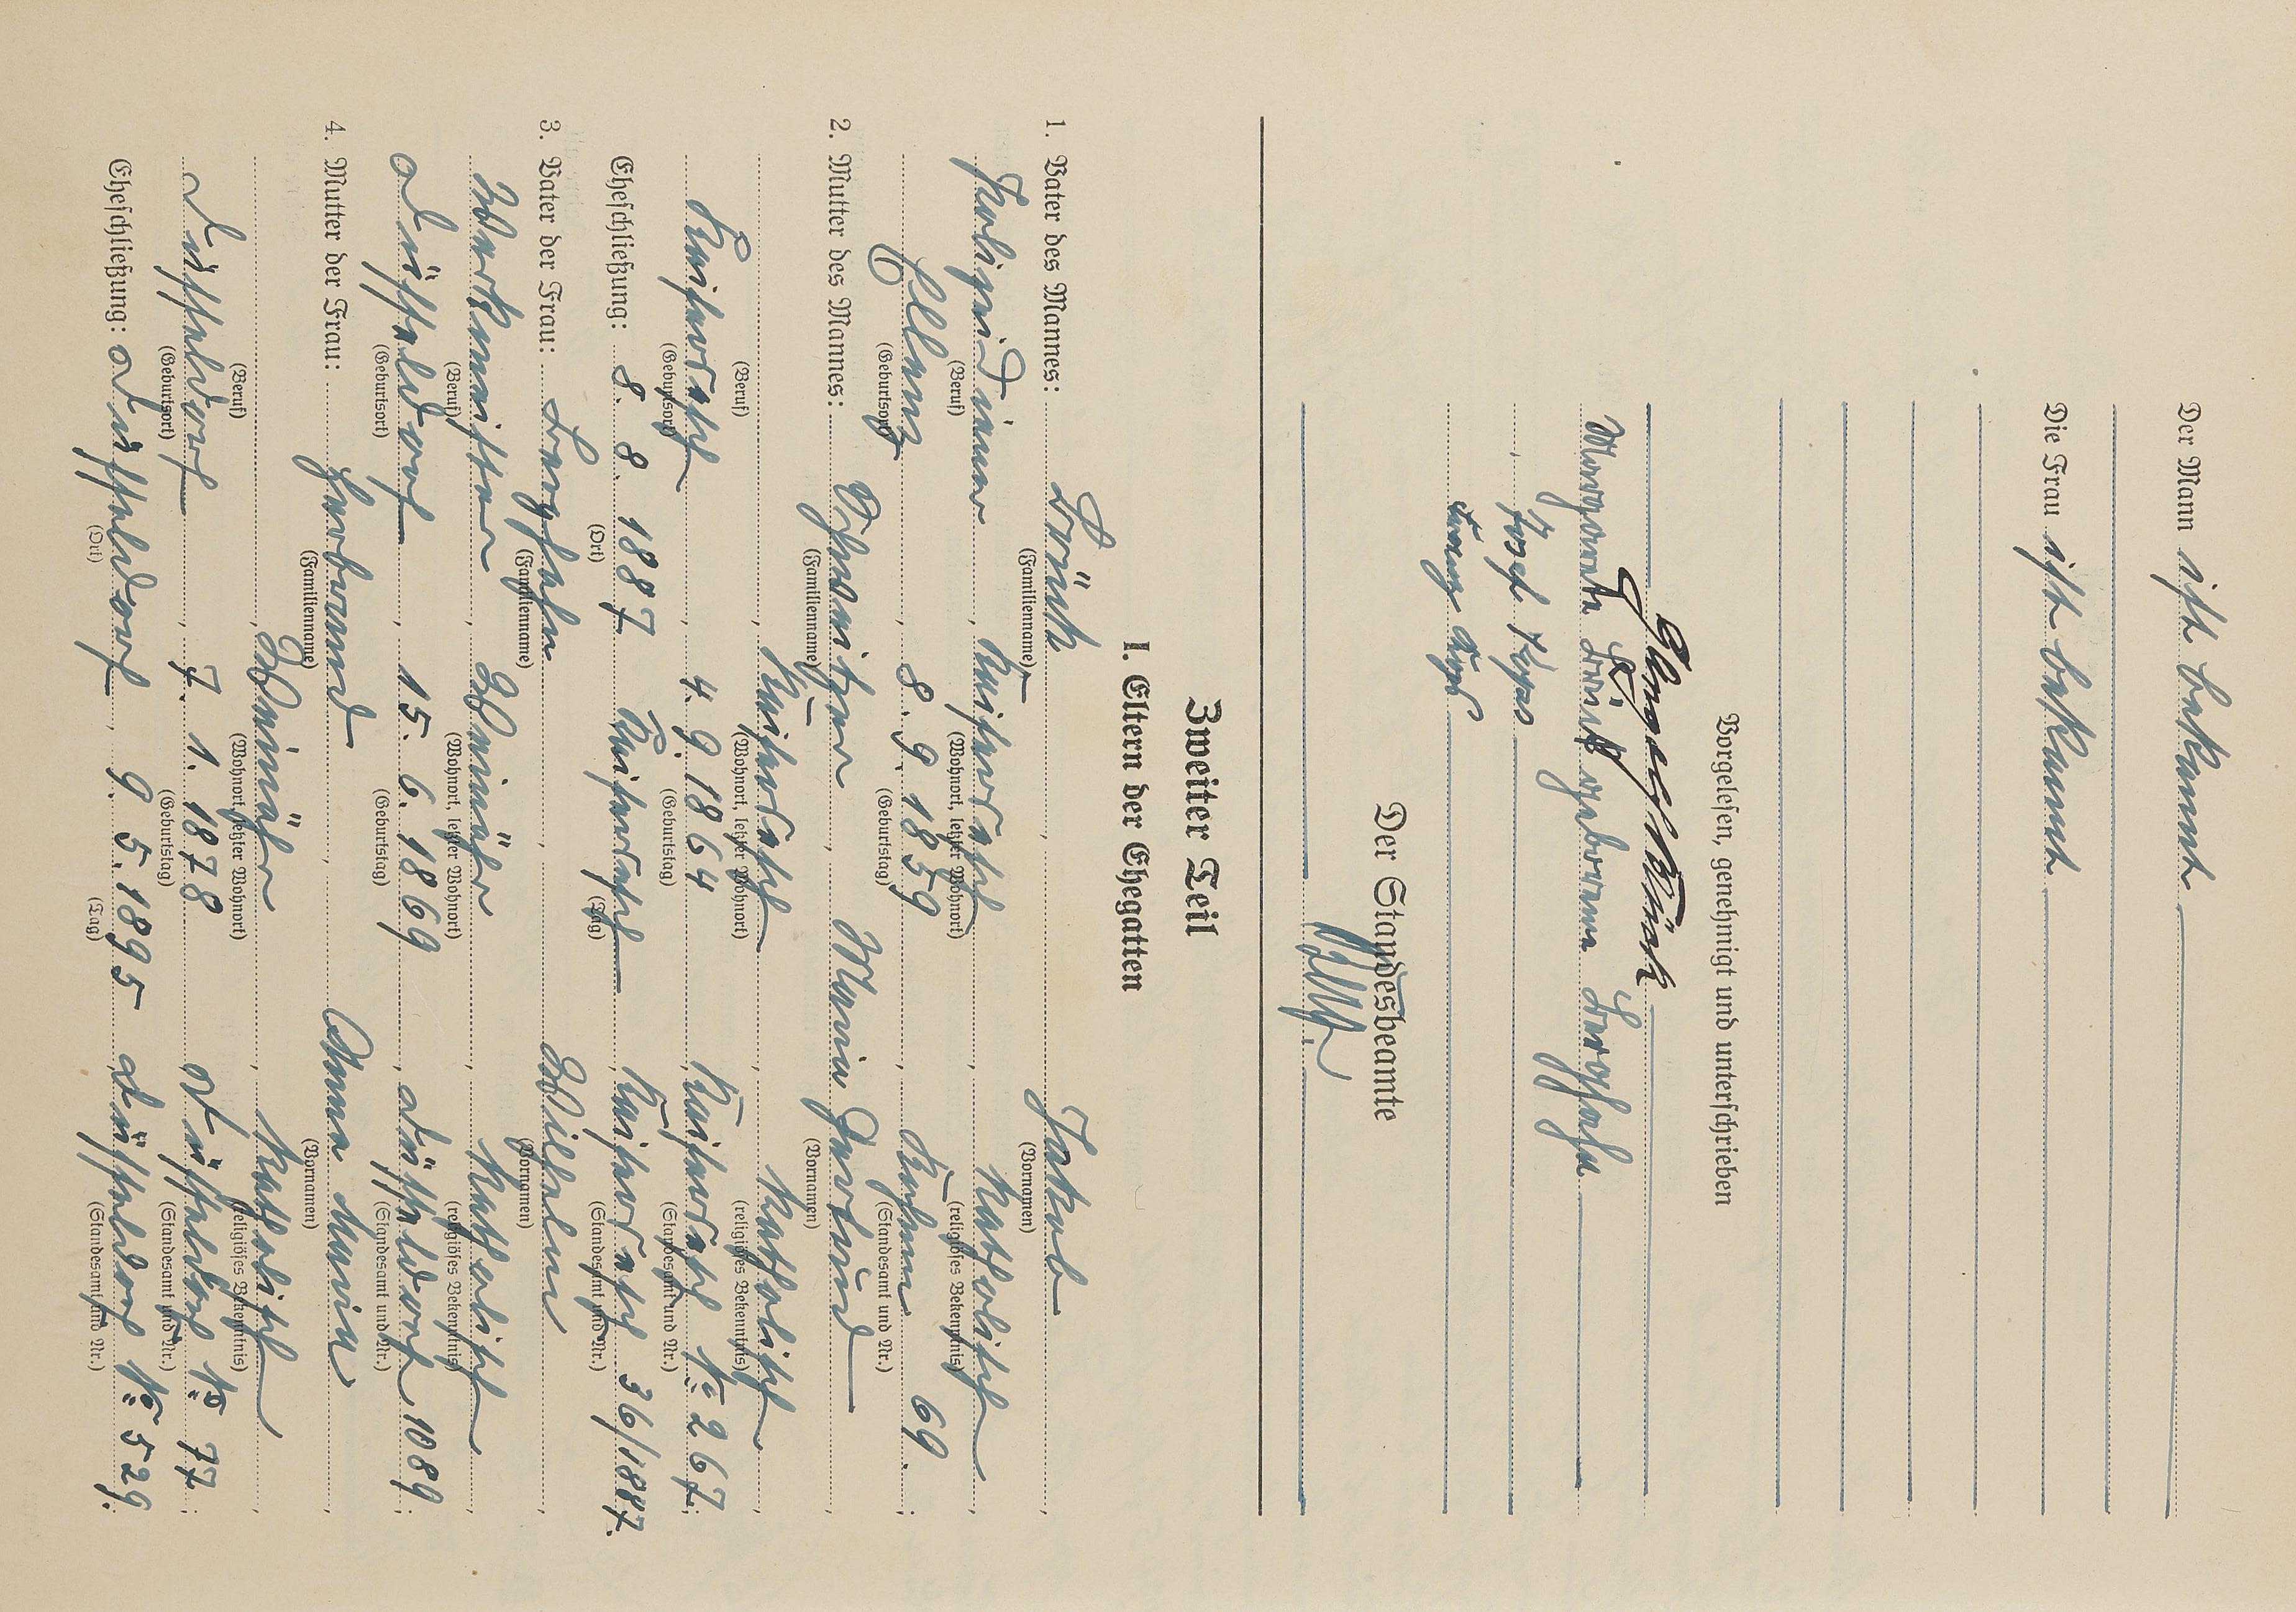 Der Mann ist bekannt
Die Frau ist bekannt
Vorgelesen, genehmigt und unterschrieben
Margarete geborene Berghahn
Josef
Der Standesbeamte
Zweiter Teil
I. Eltern der Ehegatten
1. Vater des Mannes: Jakob
(Familienname) (Vornamen)
Polizeidiener, Kaisersesch, katholisch,
(Beruf) (Wohnort, letzter Wohnort) (religiöses Bekenntnis)
8. 9. 1859, 69.;
(Geburtsort) (Geburtstag) (Standesamt und Nr.)
2. Mutter des Mannes: Schweitzer, Maria Gertrud,
(Familienname) (Vornamen)
Kaisersesch, katholisch,
(Beruf) (Wohnort, letzter Wohnort) (religiöses Bekenntnis)
Kaisersesch, 4. 9. 1864, Kaisersesch No 267;
(Geburtsort) (Geburtstag) (Standesamt und Nr.)
Eheschließung: 8. 8. 1887 Kaisersesch Kaisersesch 36/1887.
(Ort) (Tag) (Standesamt und Nr.)
3. Vater der Frau: Berghahn, Wilhelm,
(Familienname) (Vornamen)
Werkmeister, Weimar, katholisch,
(Beruf) (Wohnort, letzter Wohnort) (religiöses Bekenntnis)
Düsseldorf, 15. 6. 1869, Düsseldorf 1089;
(Geburtsort) (Geburtstag) (Standesamt und Nr.)
4. Mutter der Frau: Herbrand, Anna Maria,
(Familienname) (Vornamen)
Weimar, katholisch,
(Beruf) (Wohnort, letzter Wohnort) (religiöses Bekenntnis)
Düsseldorf, 7. 1. 1878, Düsseldorf No 77;
(Geburtsort) (Geburtstag) (Standesamt und Nr.)
Eheschließung: Düsseldorf, 9. 5. 1895 Düsseldorf No 529.
(Ort) (Tag) (Standesamt und Nr.)